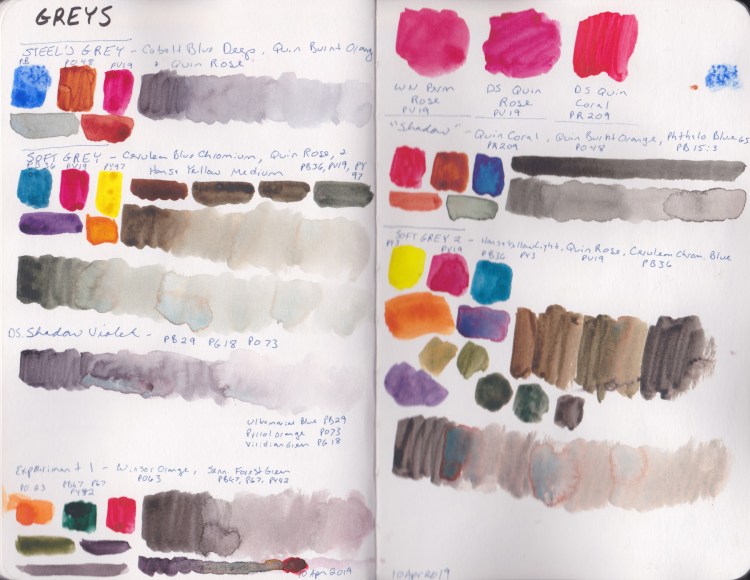 GREYS
STEEL'S GREY - Cobalt Blue Deep, Quin Burnt Orang
& Quin Rose
PB PO48 PV19
SOFT GREY - Cerulean Blue Chromium, Quin Rose, &
PB36 PV19 PY97
Hansa Yellow Medium PB36, PV19, PY
97
DS. Shadow Violet - PB29 PG18 PO73
Ultramarine Blue PB29
Pyrrol orange PO73
Viridian Green PG18
Experiment 1 - Winsor Orange, Senn. Forest Green
PO63 PBk7, PG7, PY42
10 Apr 2019
WN Perm
Rose
PV19
DS Quin
Rose
PV19
DS Quin
Coral
PR209
"Shadow" - Quin Coral, Quin Burnt Orange, Phthalo Blue GS
PR209 PO48 PB15:3
SOFT GREY 2 - Hansa Yellow Light, Quin Rose, Cerulean Chrom. Blue
PY3 PV19 PB36 PY3 PV19 PB36
10 Apr 2019